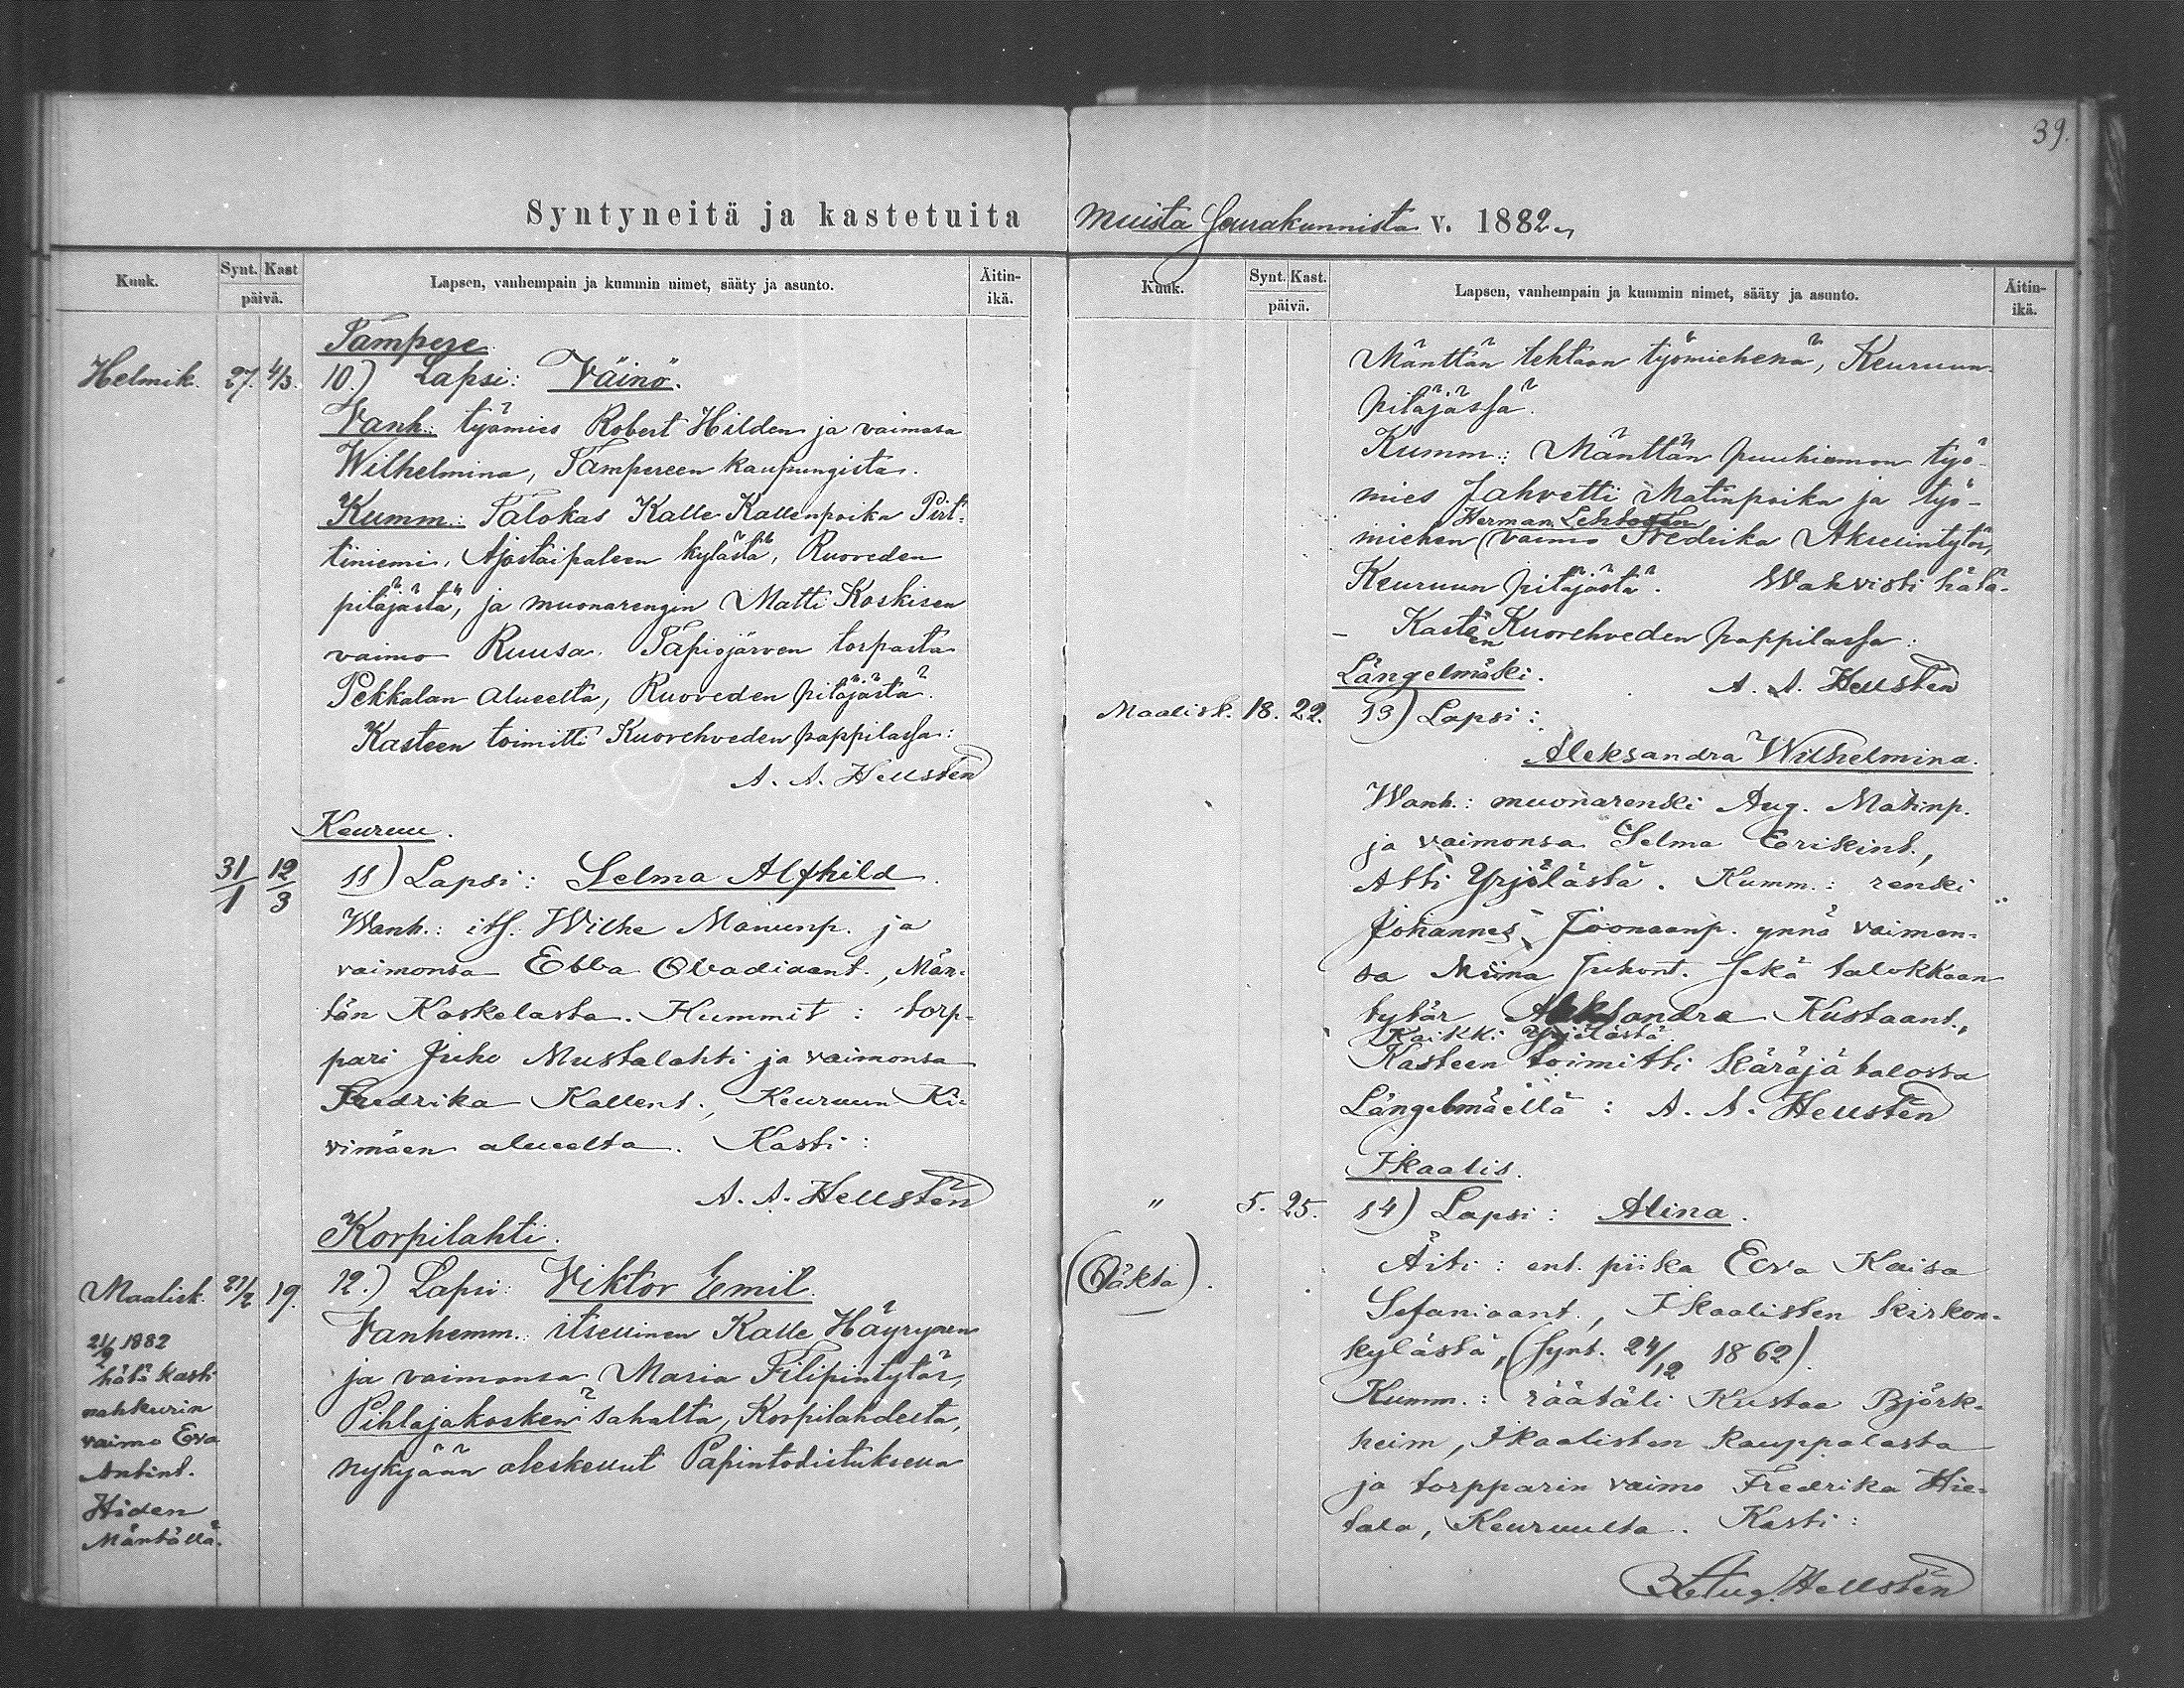 39.
Syntyneitä ja kastetuita muista seurakunnista v. 1882.
Kuuk. Synt. Kast päivä. Lapsen, vanhempain ja kummin nimet, sääty ja asunto. Äitin-ikä.
Tampere
Helmik. 27. 4/3. 10.) Lapsi: Väinö.
Vanh: työmies Robert Hilden ja vaimosa
Wilhelmina, Tampereen kaupungista.
Kumm.: Talokas Kalle Kallenpoika Pirt-
tiniemi, Ajostaipaleen kylästä, Ruoveden
pitäjästä, ja muonarengin Matti Koskisen
vaimo Ruusa Tapiojärven torpasta
Pekkalan alueelta, Ruoveden pitäjästä.
Kasteen toimitti Kuorehveden pappilassa:
A. A. Hellstén
Keuruu.
31/1 12/3 11) Lapsi: Selma Alfhild.
Wanh.: its. Wilhe Manunp. ja
vaimonsa Ebba Obadiaant., Män-
tän Koskelasta. Kummit: torp-
pari Juho Mustalahti ja vaimonsa
Fredrika Kallent., Keuruun Ki-
vimäen alueelta. Kasti:
A. A. Hellstén
Korpilahti.
Maalisk. 21/2 19. 12.) Lapsi: Viktor Emil.
Vanhemm.: itsellinen Kalle Häyrynen
ja vaimonsa Maria Filipintytär,
Pihlajakosken sahalta, Korpilahdelta,
nykyään oleskellut Papintodistuksella
21/2 1882
hätä kasti
nahkurin
vaimo Eva
Antint.
Hiden
Mäntällä.
Kuuk. Synt. Kast. päivä. Lapsen, vanhempain ja kummin nimet, sääty ja asunto. Äitin-ikä.
Mänttän tehtaan työmiehenä, Keuruun
pitäjässä.
Kumm.: Mänttän puuhiomon työ-
mies Jahvetti Matinpoika ja työ-
Herman Lehtosen
miehen vaimo Fredrika Akseuintytär,
Keuruun pitäjästä. Wahvisti hätä-
Kasteen Kuorehveden pappilassa:
A. A. Hellstén
Längelmäki.
Maalisk. 18. 22. 13) Lapsi:
Aleksandra Wilhelmina.
Wanh.: muonarenki Aug. Matinp.
ja vaimonsa Selma Erikint.,
Atti Yrjölästä. Kumm.: renki
Johannes Joonaanp. ynnä vaimon-
sa Miina Juhont. sekä talokkaan
tytär Aleksandra Kustaant.,
Kaikki Yrjölästä
Kasteen toimitti Käräjätalossa
Längelmäellä: A. A. Hellstén
Ikaalis.
" 5. 25. 14) Lapsi: Alina.
(Oäktä).
Äiti: ent. piika Eeva Kaisa
Sefaniaant., Ikaalisten kirkon-
kylästä, (synt. 24/12 1862).
Kumm.: räätäli Kustaa Björk-
heim, Ikaalisten Kauppalasta
ja torpparin vaimo Fredrika Hie-
tala, Keuruulta. Kasti:
Aug. Hellstén